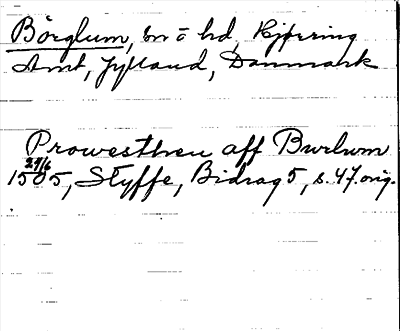 Börglum, sn o hd, Hjörring
Amt, Jylland, Danmark
Prowesthen aff Burlum
27/6
1505, Styffe, Bidrag 5, s. 47. orig.